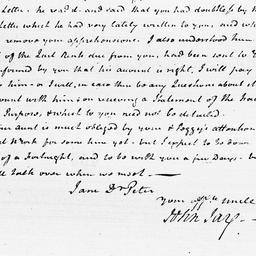 Letter. he read. and said that you had doubtless by
Letter which he had very lately written to you, and
remove your apprehensions. I also understood him
of the Last Rents due from you, had been sent to
informed by you that his account is right, I will pay
to him. or I will, in case there be any Questions about
account with him; on receiving a Statement of the
Purpose, & which to you need not be detailed.
your aunt is much obliged by your & Peggy's attention
Work for some time yet. but I expect to be down
of a Fortnight, and to be with you a few Days.
talk over when we meet —
I am Dr. Peter
your afft. uncle
John Jay. —